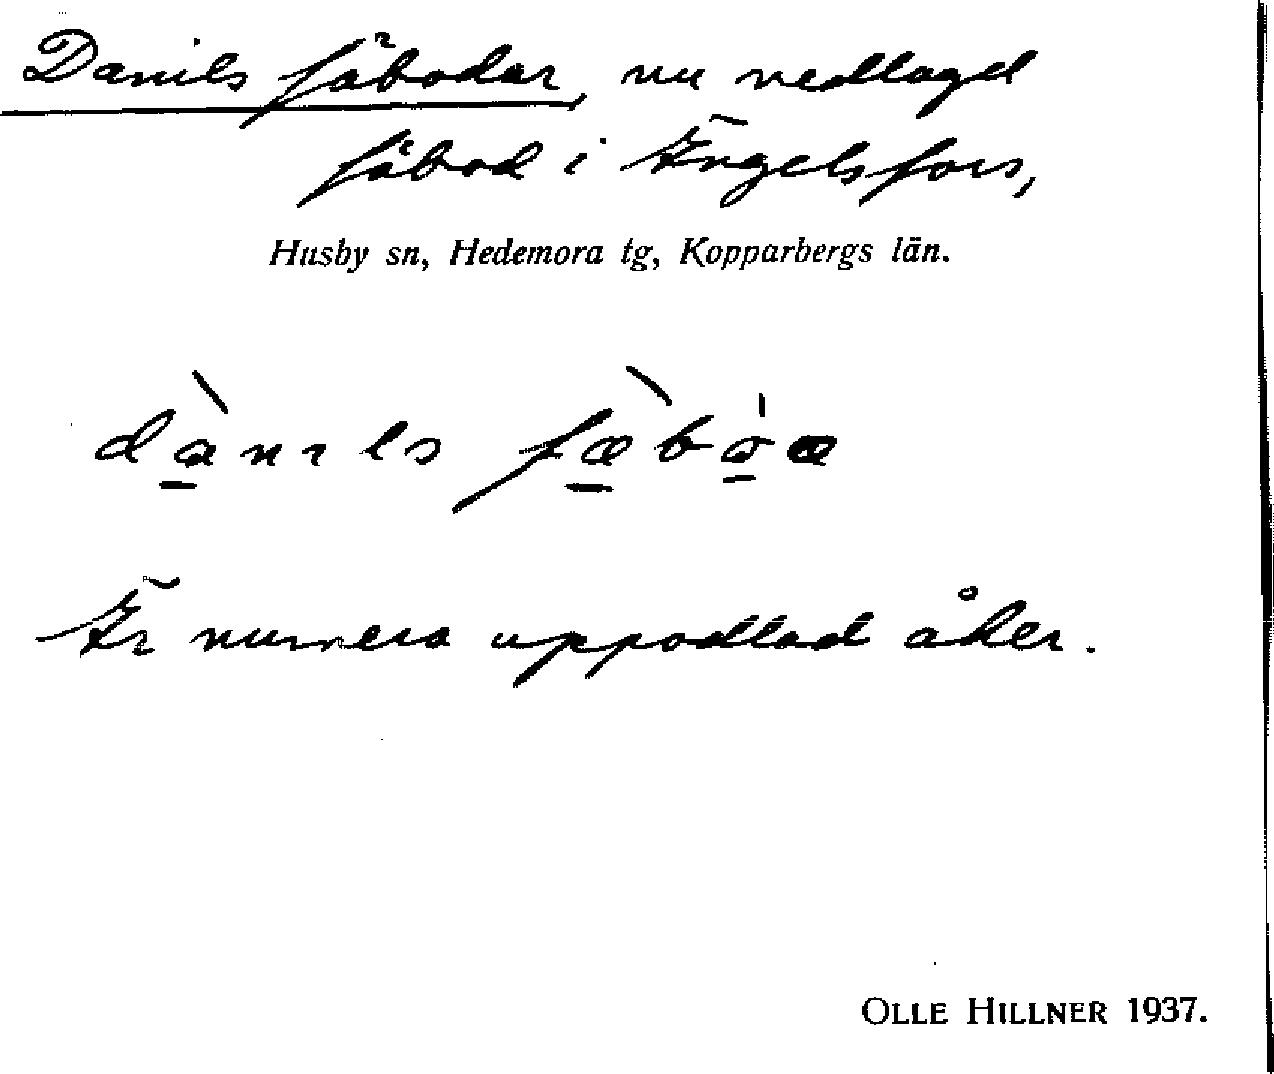 Danils fäbodar, nu nedlagd
fäbod i Ängelsfors,
Husby sn, Hedemora tg, Kopparbergs län.
Är numera uppodlad åker.
OLLE HILLNER 1937.